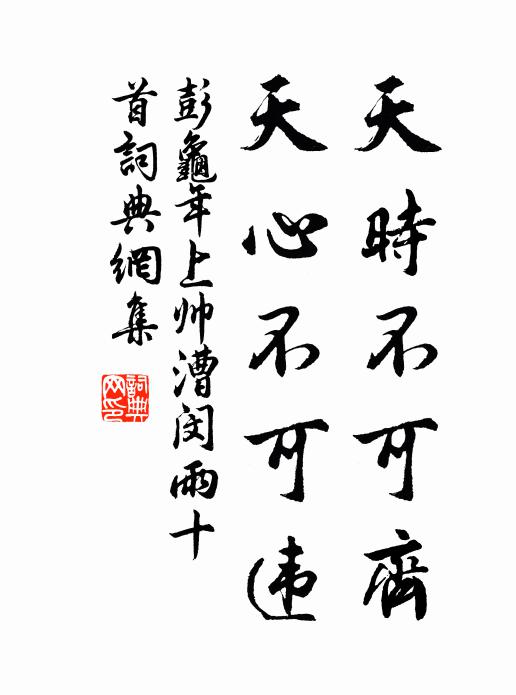 天時不可齊
天心不可违
彭龜年上帅漕闵雨十
首詞典網集
詞典
网印